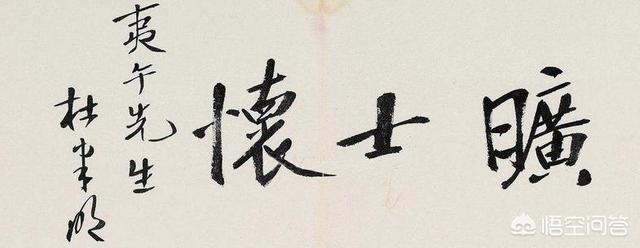 曠士懷
夷午先生
杜聿明
悟空问答